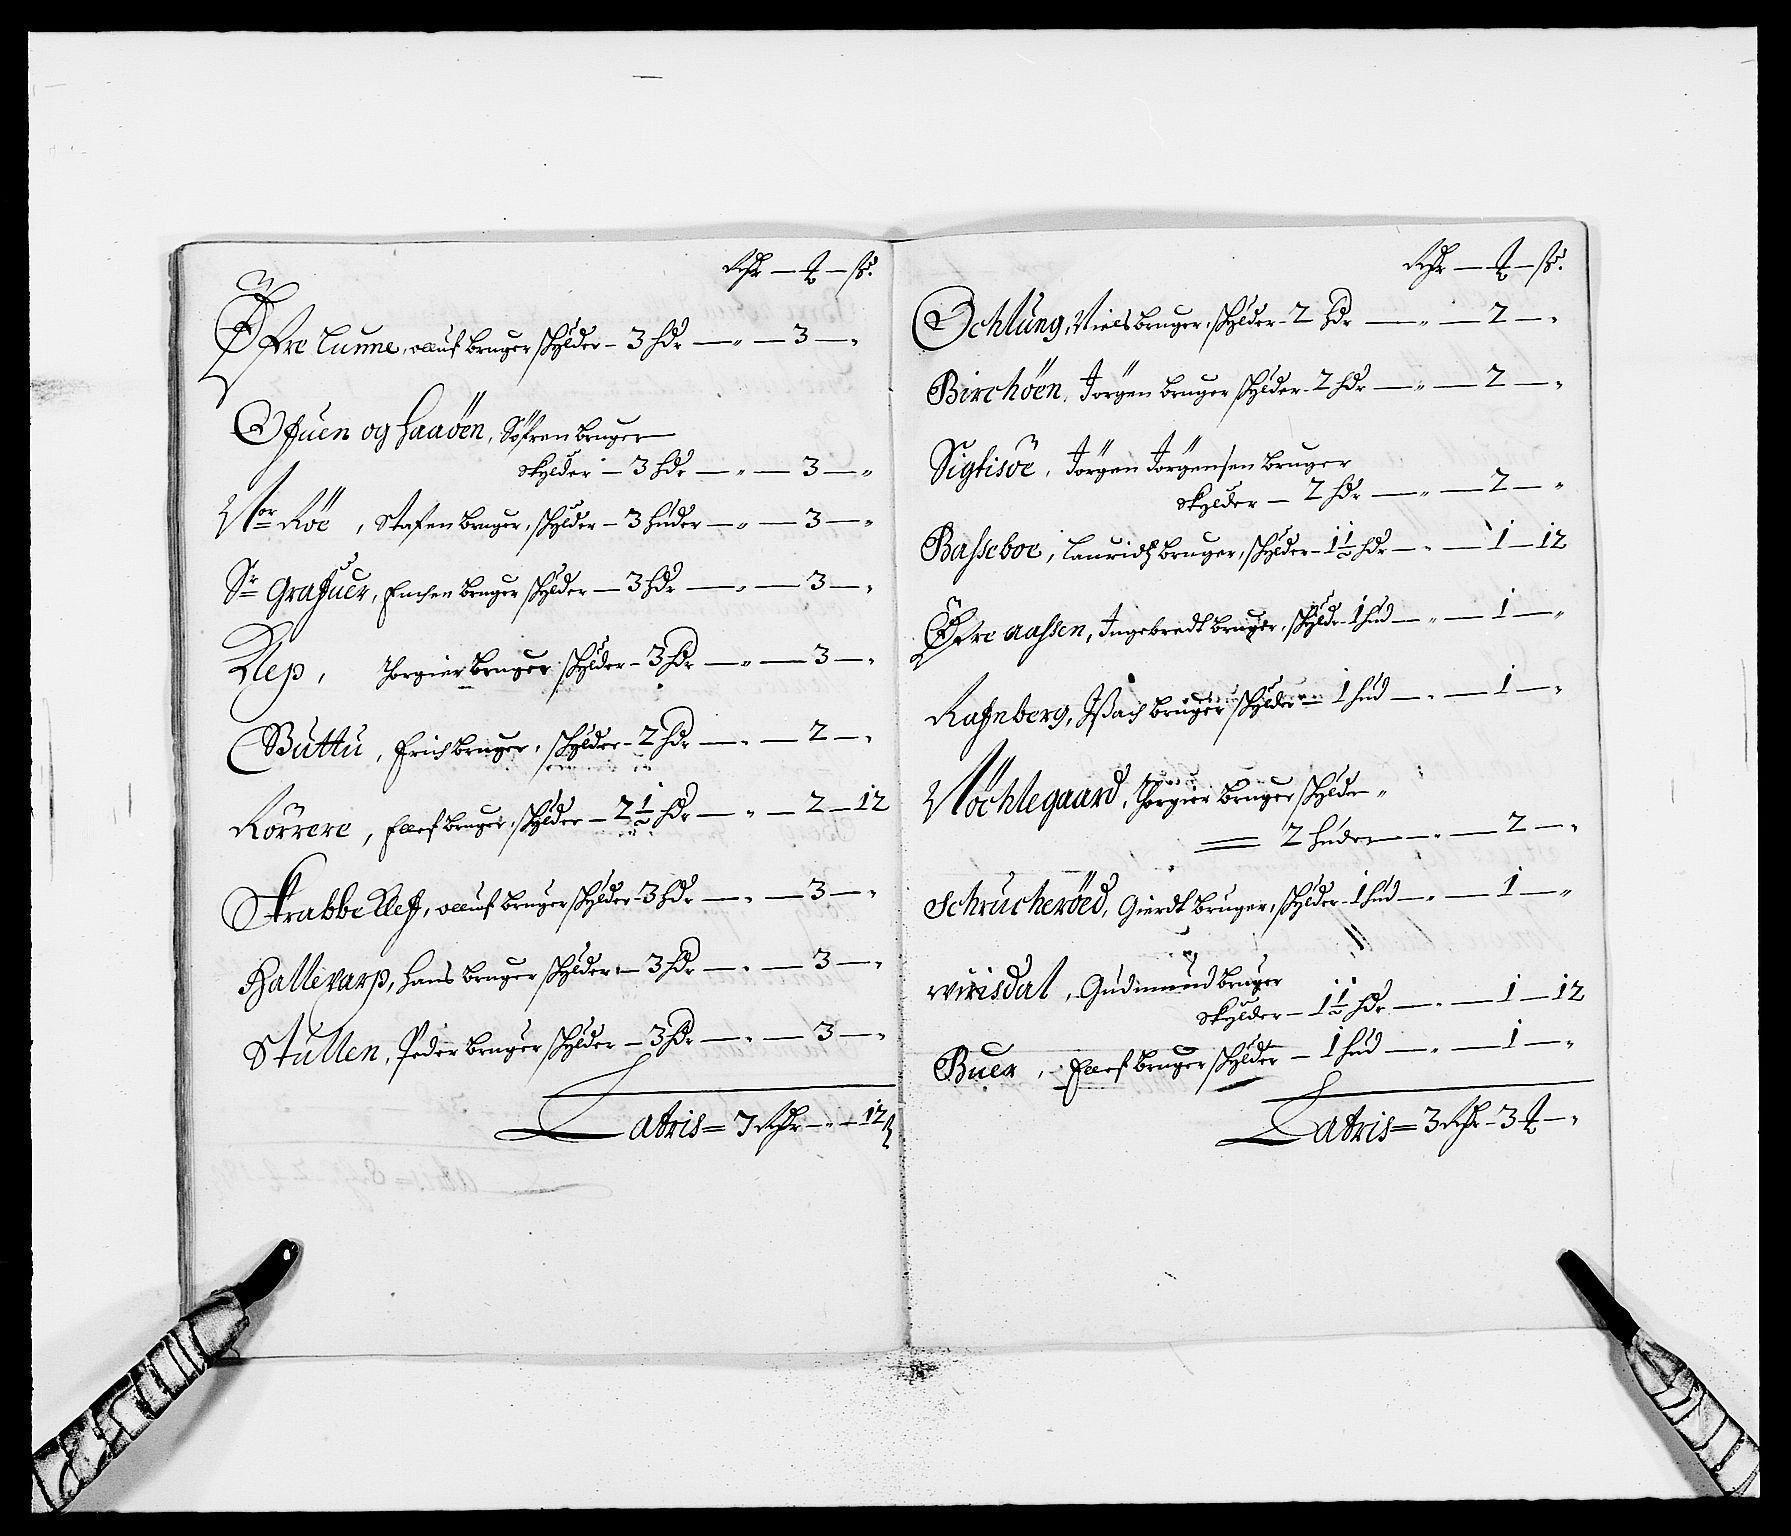 Rdr — ℔ — ß.
Øfre Lunne, olluf bruger skylder – 3 hdr — " — 3 — "
Ofuen og haaøen, Söfren bruger
skylder — 3 hdr — " — 3 — "
Nor Röe, Stefen bruger, skylder – 3 huder — " — 3 — "
Sr Grafuer, bruger skylder — 3 hdr — " — 3 — "
Klep, Thorgier bruger skylder – 3 hdr — " — 3 — "
Buttu, Erich bruger, skylder – 2 hdr — " — 2 — "
Rörrere, Ellef bruger, skylder – 2 1/2 hdr — " — 2 — 12
Krabbe Klef, olluf bruger skylder – 3 hdr — " — 3 — "
Hallevarp, hans bruger skylder — 3 hdr — " — 3 — "
Stullen, Peder bruger skylder — 3 hdr — " — 3 — "
Latris = 7 Rdr — " — 12 ß
Rdr — ℔ — ß.
Ochlung, Niels bruger, skylder – 2 hdr — " — 2 — "
Birchöen, Jörgen bruger skylder – 2 hdr — " — 2 — "
Sigtisöe, Jörgen Jörgensen bruger
skylder — 2 hdr — " — 2 — "
Basseboe, Lauridtz bruger, skylder – 1 1/2 hdr — " — 1 — 12
Øfre aassen, Ingebredt bruger, skylder 1 hud — " — 1 — "
Rafnberg, Issach bruger skylder — 1 hud — " — 1 — "
Nöchlegaard, Thorgier bruger skylder "
= 2 huder — " — 2 — "
Schrucheröed, Gierdt bruger, skylder – 1 hud — " — 1 — "
wirisdal, Gudmund bruger
skylder — 1 1/2 hdr — " — 1 — 12
Buer, Ellef bruger skylder — 1 hud — " — 1 — "
Latris = 3 Rdr – 3 ℔ — "